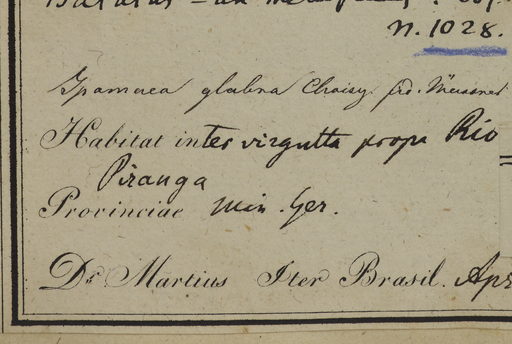 Batatas
n. 1028.
Ipomaea glabra Choisy. fid. Meissner
Habitat inter virgulta prope Rio
Piranga
Provinciae Min. Ger.
Dr. Martius Iter Brasil. Apr